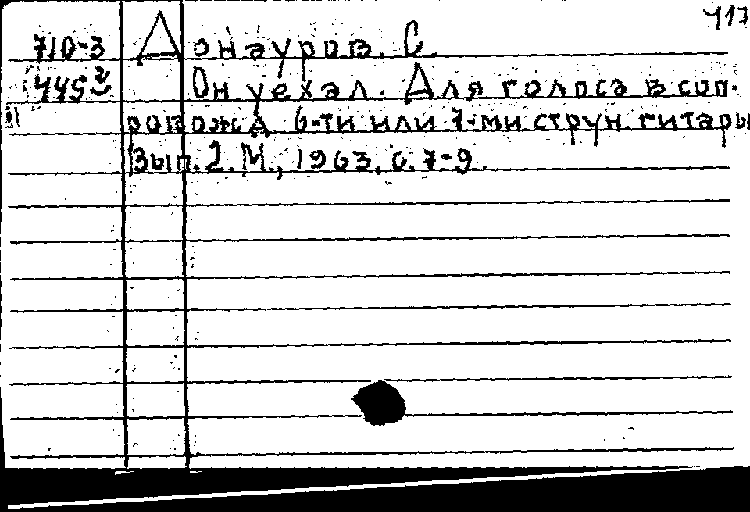 417
710-3 Донауров. С.
445 Он уехал. Для голоса в соп-
ровожд 6-ти или 7-ми струн. гитары
Вып. 2. М., 1963, с. 7-9.